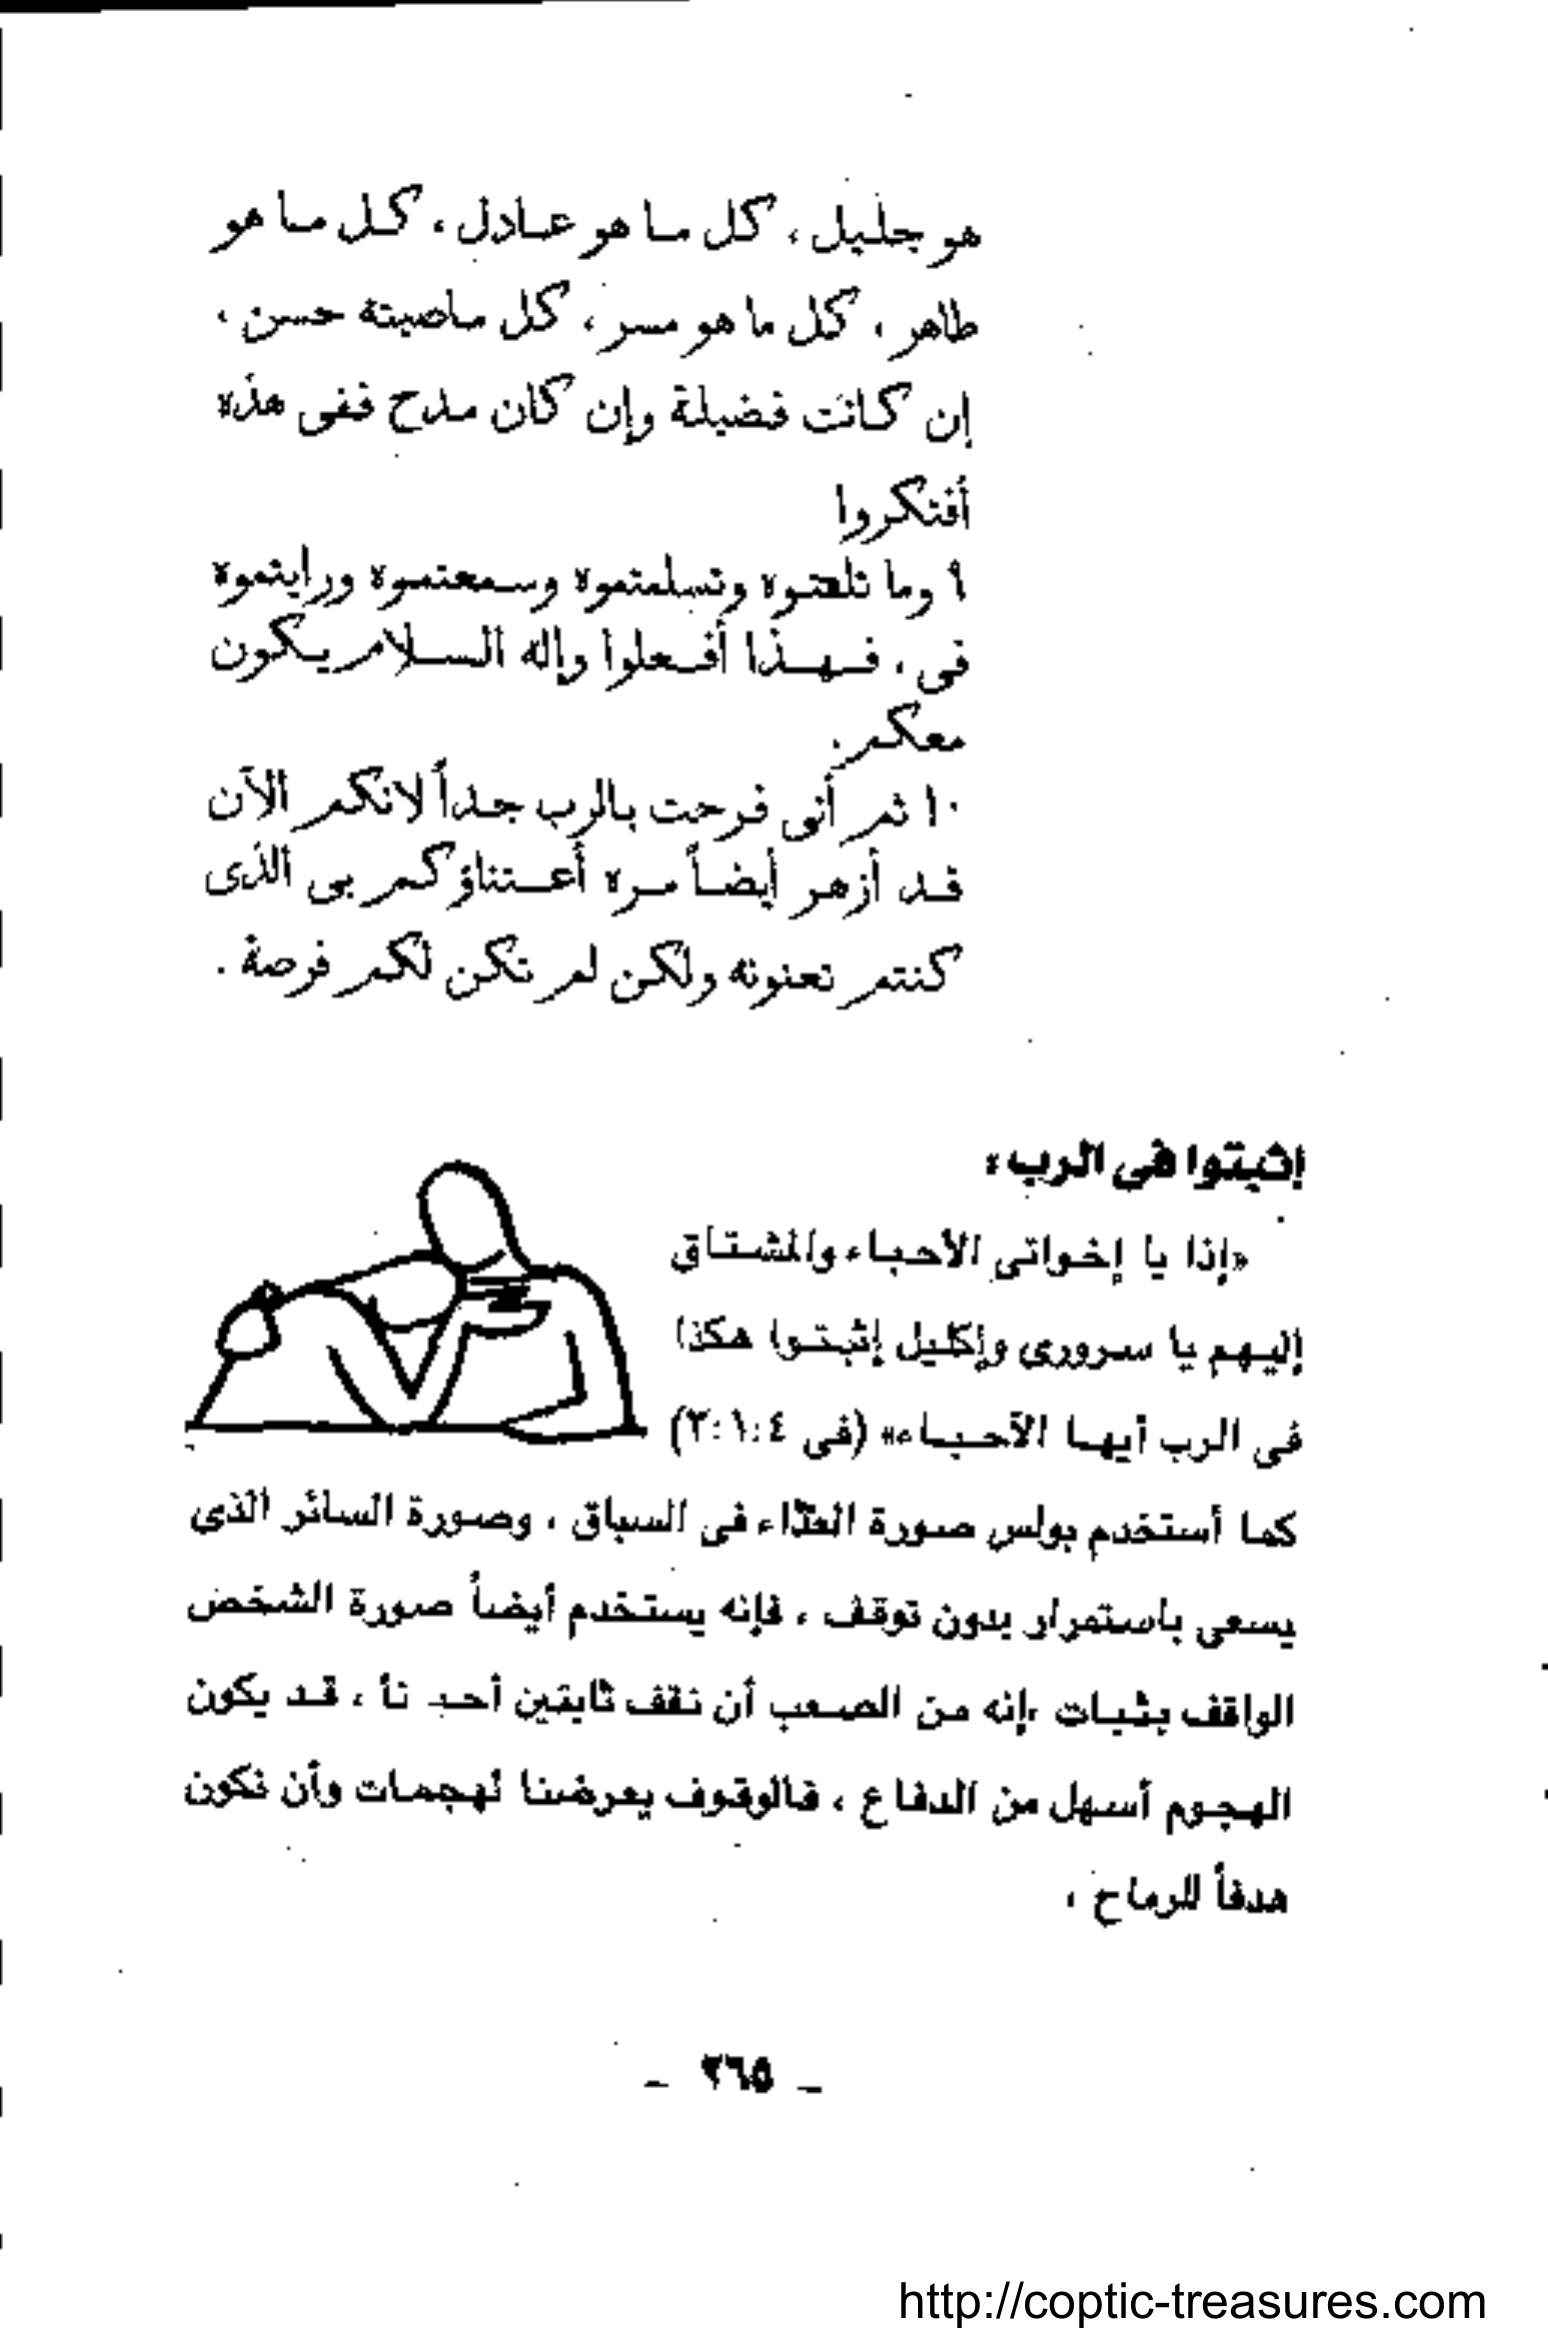 هو جليل ، كل ما هو عادل ، كل ما هو
طاهر ، كل ما هو مسر ، كل ماصيته حسن ،
إن كانت فضيلة وإن كان مدح ففى هذه
أفتكروا
٩ وما تلعتموه وتسلمتموه وسمعتموه ورايتموه
فى ، فهذا أفعلوا وإله السلام يكون
معكم .
١٠ ثم أنى فرحت بالرب جداً لانكم الآن
قد أزهر أيضاً مره أعتناؤكم بى الذى
كنتم تعنونه ولكن لم تكن لكم فرصة .
إثبتوا فى الرب :
«إذا يا إخواتى الأحباء والمشتاق
إليهم يا سرورى وإكليل إثبتوا هكذا
فى الرب أيها الآحباء» (فى ٤:١:٣)
كما أستخدم بولس صورة العدّاء فى السباق ، وصورة السائر الذى
يسعى باستمرار بدون توقف ، فإنه يستخدم أيضاً صورة الشخص
الواقف بثبات ،إنه من الصعب أن نقف ثابتين أحد نأ ، قد يكون
الهجوم أسهل من الدفاع ، فالوقوف يعرضنا لهجمات وأن نكون
هدفاً للرماح ،
ـ ٢٦٥ ـ
http://coptic-treasures.com